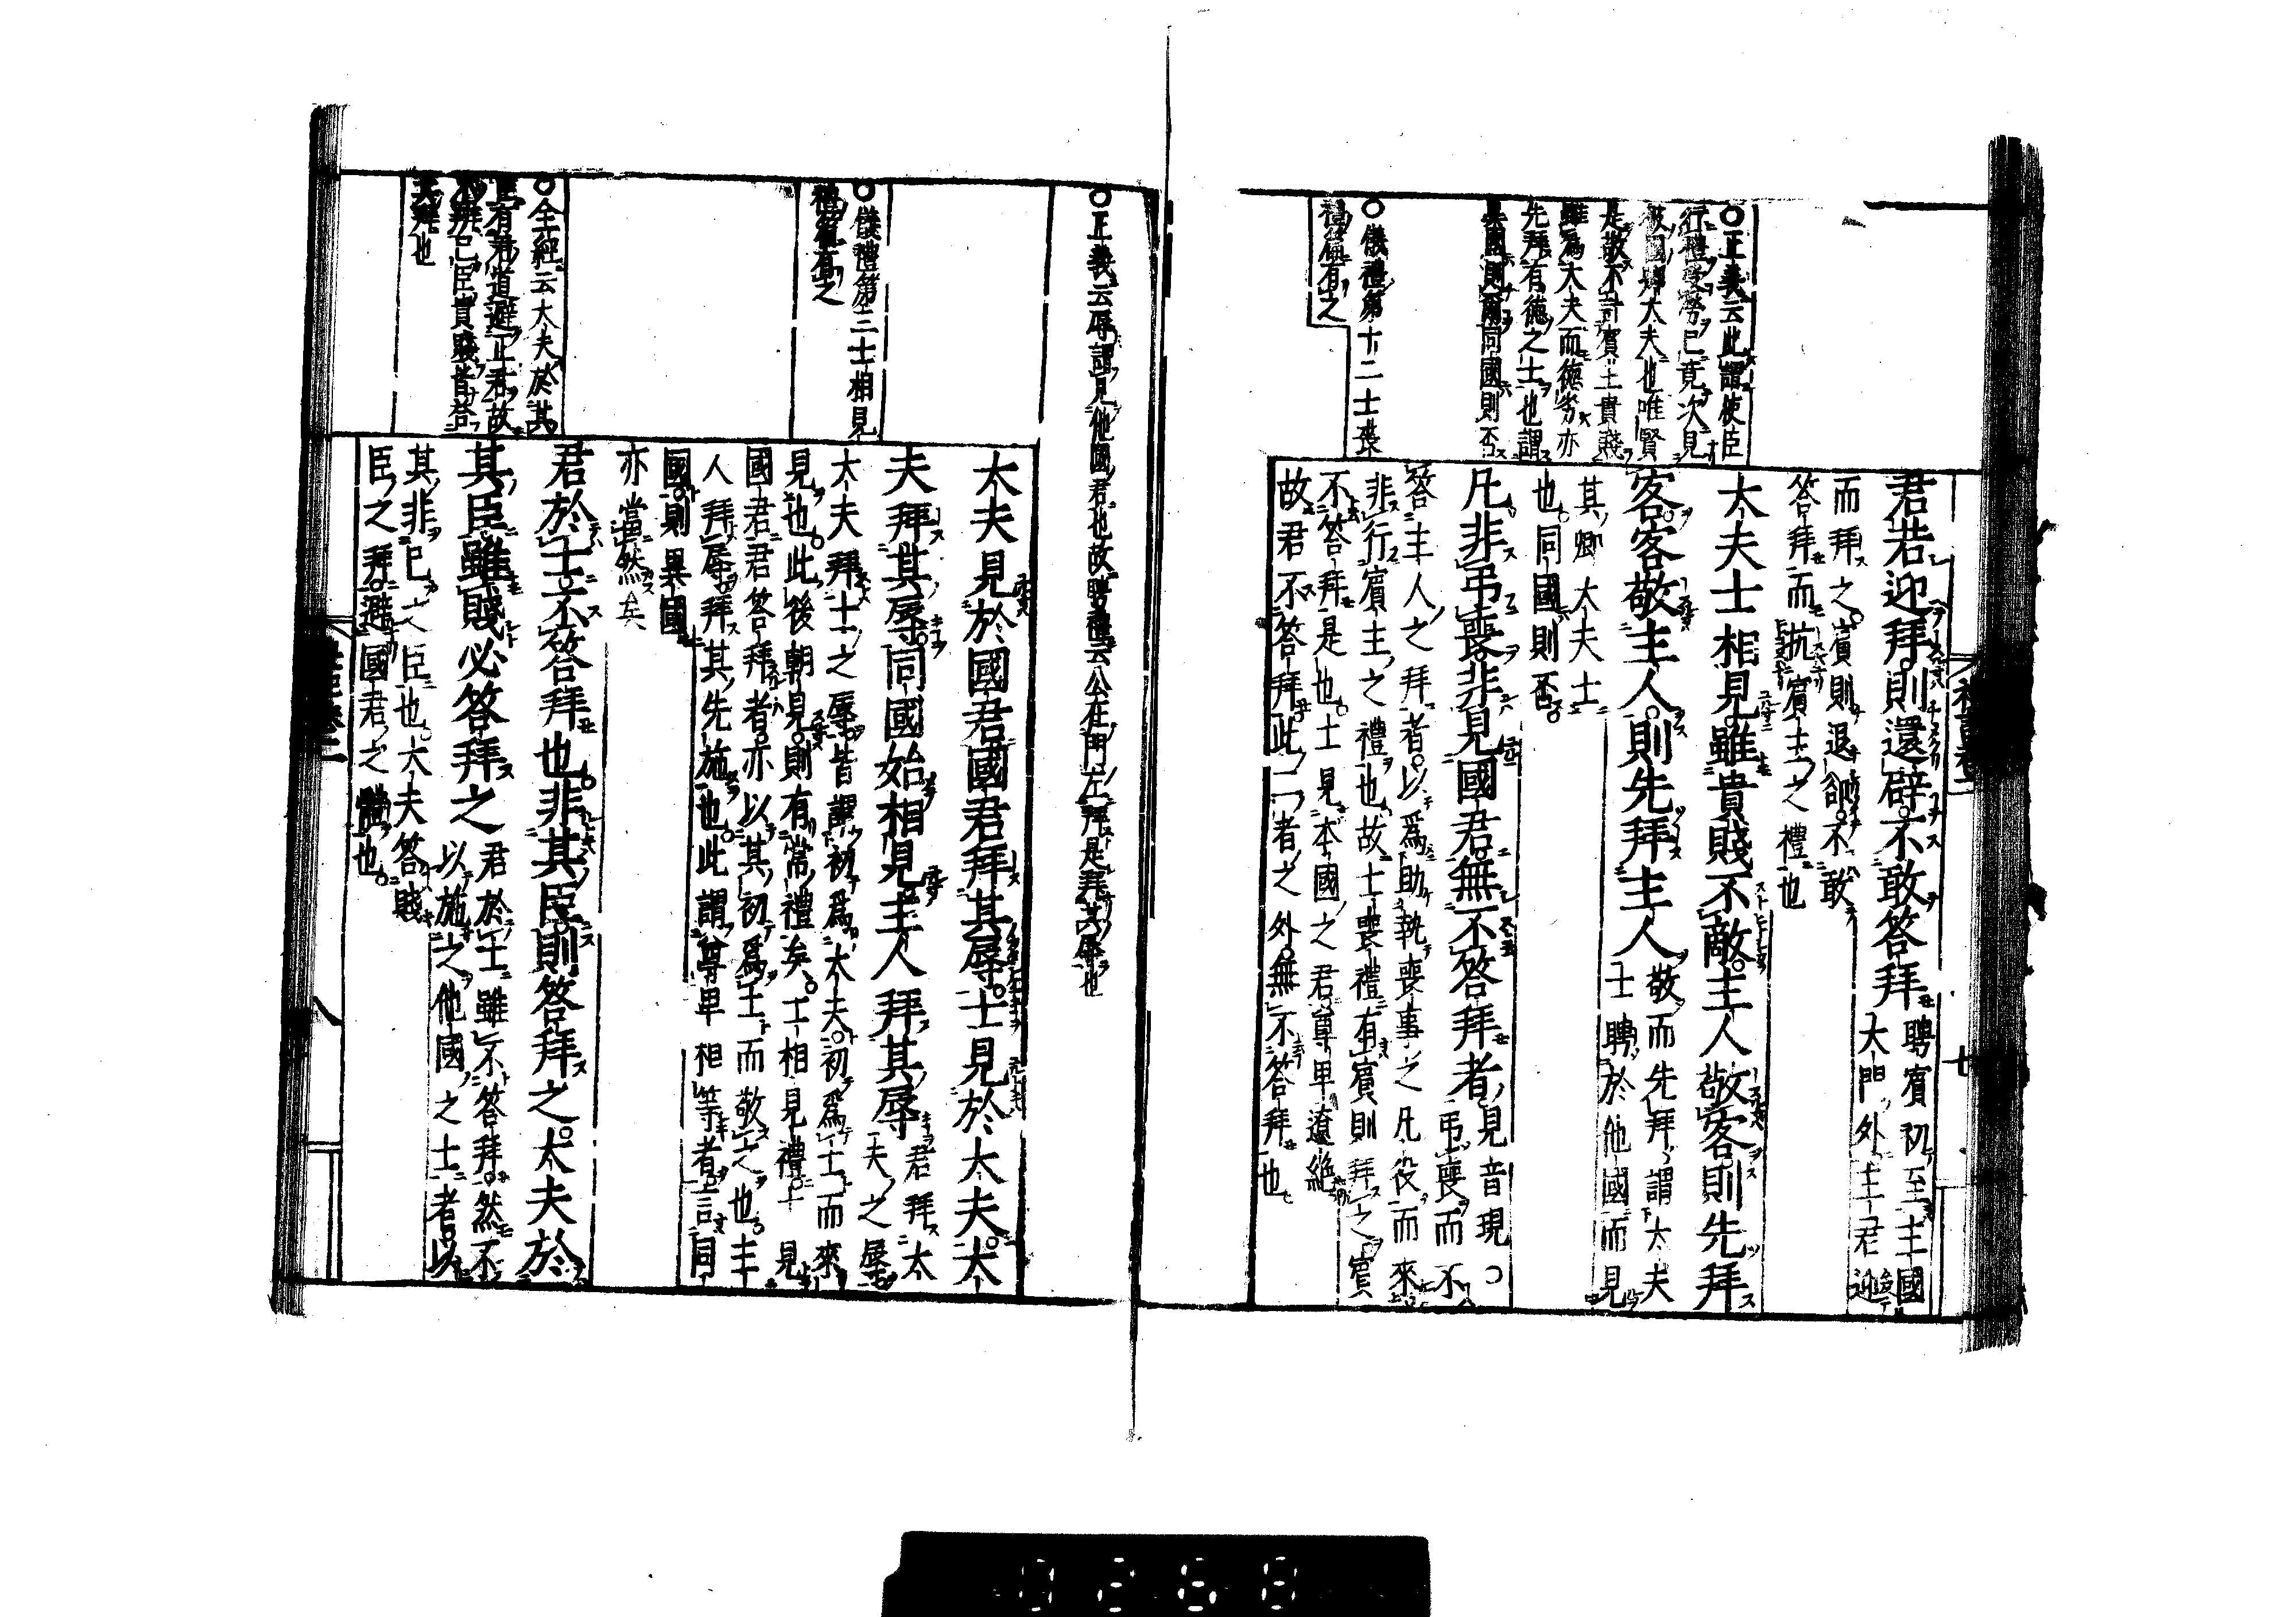 ○正義云此謂使臣
行禮受勞已竟次見
彼國卿大夫也唯賢
是敬不計賓主貴賤
雖為大夫而德劣亦
先拜有德之士也謂
異國則爾同國則否
○儀禮第十二士喪
禮篇有之
君若迎拜則還辟不敢答拜
聘賓初至主國
大門外主君迎
而拜之賓則退卻不敢
答拜而抗賓主之禮也
大夫士相見雖貴賤不敵主人敬客則先拜
客客敬主人則先拜主人
敬而先拜謂大夫
士聘於他國而見
其卿大夫士
也同國則否
凡非弔喪非見國君無不答拜者
見音現○
弔喪而不
答主人之拜者以爲助執喪事之凡役而來
非行賓主之禮也故士喪禮有賓則拜之賓
不答拜是也士見本國之君尊卑遼絶
故君不答拜此二者之外無不答拜也
七
○正義云辱謂見他國君也故聘禮云公在門左拜是拜其辱也
○儀禮第三士相見
禮篇有之
○全經云大夫於其
君於士不答拜也非其臣則答拜之大夫於
其臣雖賤必答拜之
大夫見於國君國君拜其辱士見於大夫大
夫拜其辱同國始相見主人拜其辱
君拜大
夫之辱
大夫拜士之辱皆謂初爲大夫初爲士而來
見也此後朝見則有常禮矣士相見禮士見
國君君答拜者亦以其初爲士而敬之也主
人拜辱拜其先施也此謂尊卑相等者言同
國則異國
亦當然矣
君於士雖不答拜然不
以施之他國之士者以
其非已之臣也大夫答賤
臣之拜避國君之體也
八
0268